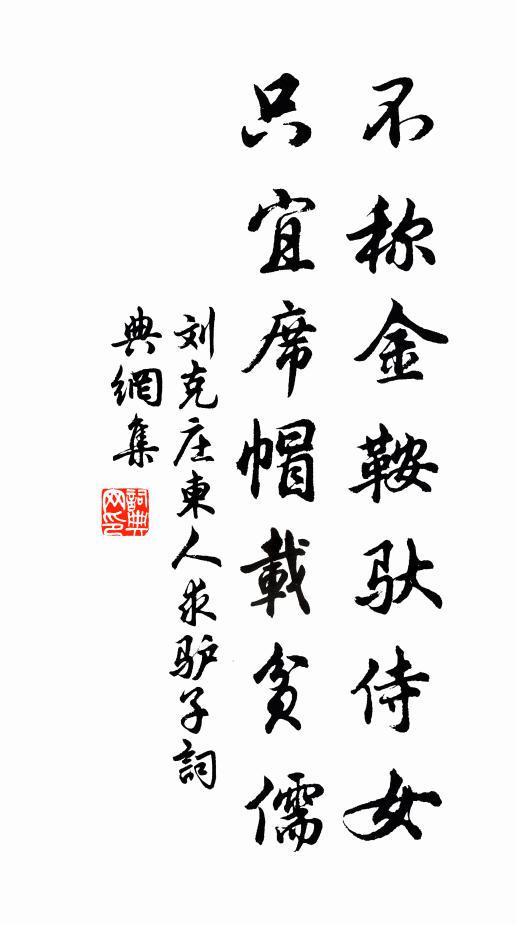 不称金鞍驮侍女
只宜席帽載贫儒
刘克庄東人求驴子詞
典網集
詞典
网印